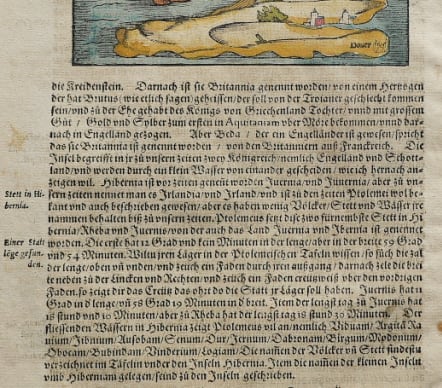 Dover
die Kreidenstein. Darnach ist sie Britannia genennt worden von einem Hertzogen
der hat Brutus (wie etlich sagen) geheissen/ der soll von der Troianer geschlecht kommen
sein/ vnd zů der Ehe gehabt des Königs von Griechenland Tochter/ vnnd mit grossem
Gůt / Gold vnd Sylber zum ersten in Aquitaniam vber Möre bekommen/ vnnd dar-
nach in Engelland gezogen. Aber Beda / der ein Engelländer ist gewesen/ spricht
das sie Britannia ist genennt worden / von den Britanniern auß Franckreich. Die
Insel begreifft in jr zů vnsern zeiten zwey Königreich/ nemlich Engelland vnd Schott-
land/ vnd werden durch ein klein Wasser von einander gescheiden/ wie ich hernach an-
zeigen wil. Hibernia ist vor zeiten genennt worden Iuerna/ vnd Iuuernia/ aber zů vn-
sern zeiten nennet man es Irlandia/ vnd Irland/ vnd ist zů den zeiten Ptolemei wol be-
kant vnd auch beschrieben gewesen/ aber es haben wenig Völcker/ Stett vnd Wässer jre
nammen behalten biß zů vnsern zeiten. Ptolemeus setzt diese zwo fürnembste Stett in Hi
bernia/ Rheba vnd Juernis/ von der auch das Land Juernia vnd Ibernia ist genennt
worden. Die erste hat 12 Grad vnd kein Minuten in der lenge/ aber in der breite 59 Grad
vnd 54 Minuten. Wiltu jren Läger in der Ptolemeischen Tafeln wissen/ so sůch die zal
der lenge/ oben vñ vnden/ vnd zeuch ein Faden durch jren außgang/ darnach zele die brei
te neben zů der Lincken vnd Rechten/ vnd zeuch ein Faden creutzweiß vber den vordrigen
Faden/ so zeigt dir das Creutz das ohrt do die Statt jr Läger soll haben. Juernis hat 11
Grad in d lenge/ vñ 58 Grad 19 Minuten in d breit. Item der lengst tag zů Juernis hat
18 stund vnd 10 Minuten/ aber zů Rheba hat der lengst tag 18 stund 30 Minuten. Der
fliessenden Wässern in Hibernia zeigt Ptolemeus vil an/ nemlich Viduam/ Argita Ra
uium/ Jibnium/ Ausobam/ Senum/ Dur/ Jernum/ Dabronam/ Birgum/ Modonum/
Obocam/ Bubindam/ Vinderium/ Logiam/ Die namen der Völcker vñ Stett findestu
verzeichnet im Täfelin vnder den Inseln Hibernia. Item die namen der kleinen Inseln
vmb Hiberniam gelegen/ seind zů den Inseln geschrieben.
Stett in Hi-
bernia.
Einer Statt
läge gesun-
den.